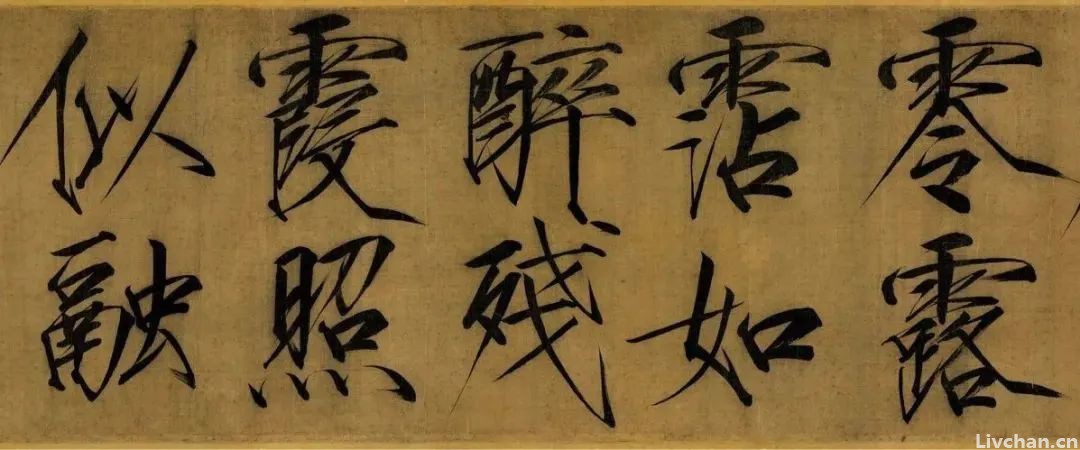 零露
霑如
醉残
霞照
似融
Livchan.cn